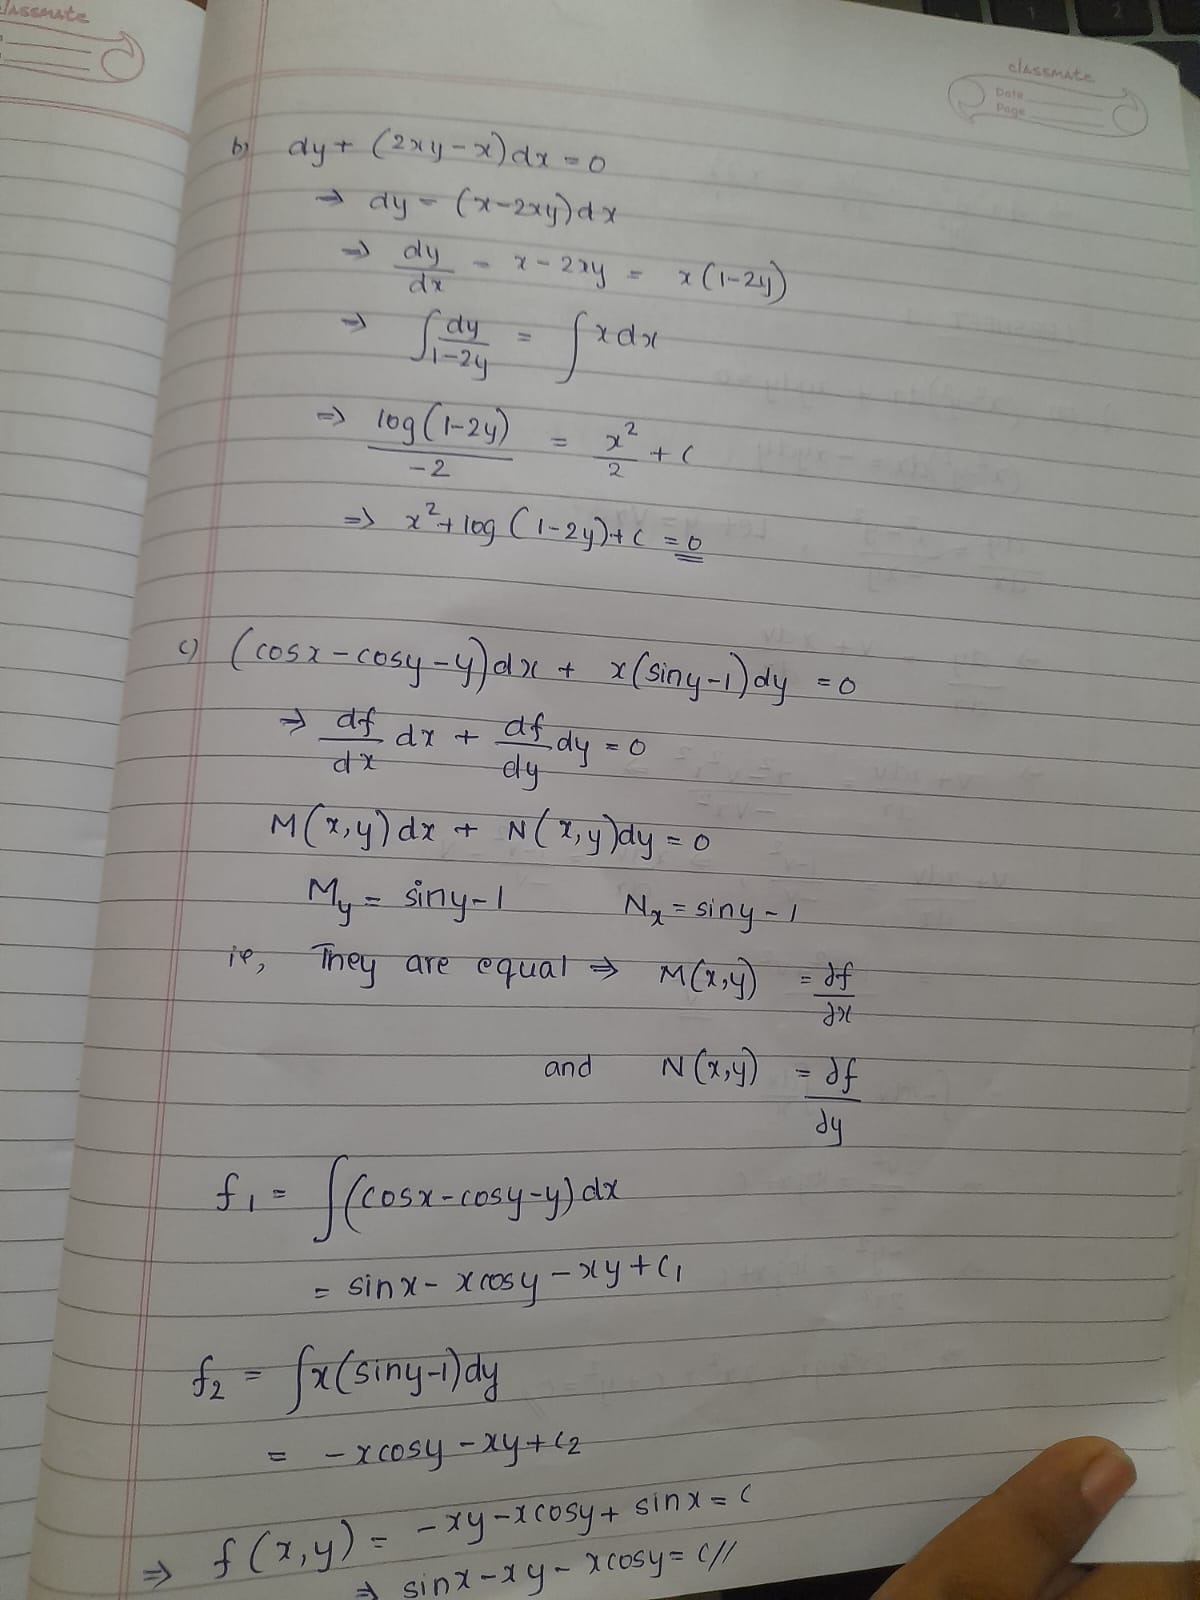 classmate
classmate
Date
Page
b) dy + (2xy - x)dx = 0
⇒ dy = (x-2xy)dx
⇒ dy/dx = x - 2xy = x(1-2y)
⇒ ∫dy/1-2y = ∫x dx
⇒ log(1-2y)/-2 = x²/2 + C
⇒ x² + log(1-2y) + C = 0
c) (cosx - cosy - y)dx + x(siny-1)dy = 0
⇒ df/dx dx + df/dy dy = 0
M(x,y)dx + N(x,y)dy = 0
My = siny-1 Nx = siny-1
ie, They are equal ⇒ M(x,y) = ∂f/∂x
and N(x,y) = ∂f/∂y
f1 = ∫(cosx-cosy-y)dx
= sinx - xcosy - xy + C1
f2 = ∫x(siny-1)dy
= -xcosy - xy + C2
⇒ f(x,y) = -xy - xcosy + sinx = C
⇒ sinx - xy - xcosy = C//